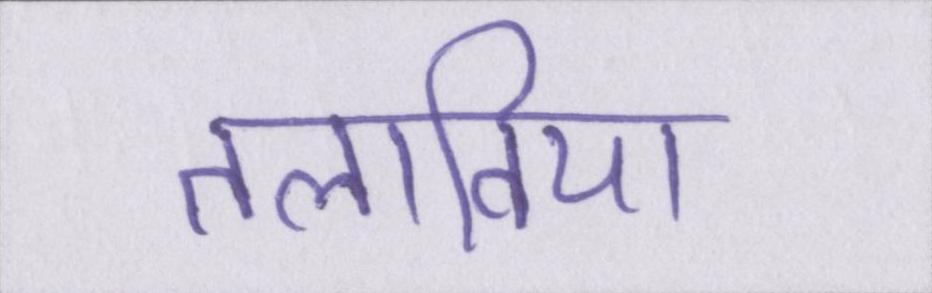 तलाविया